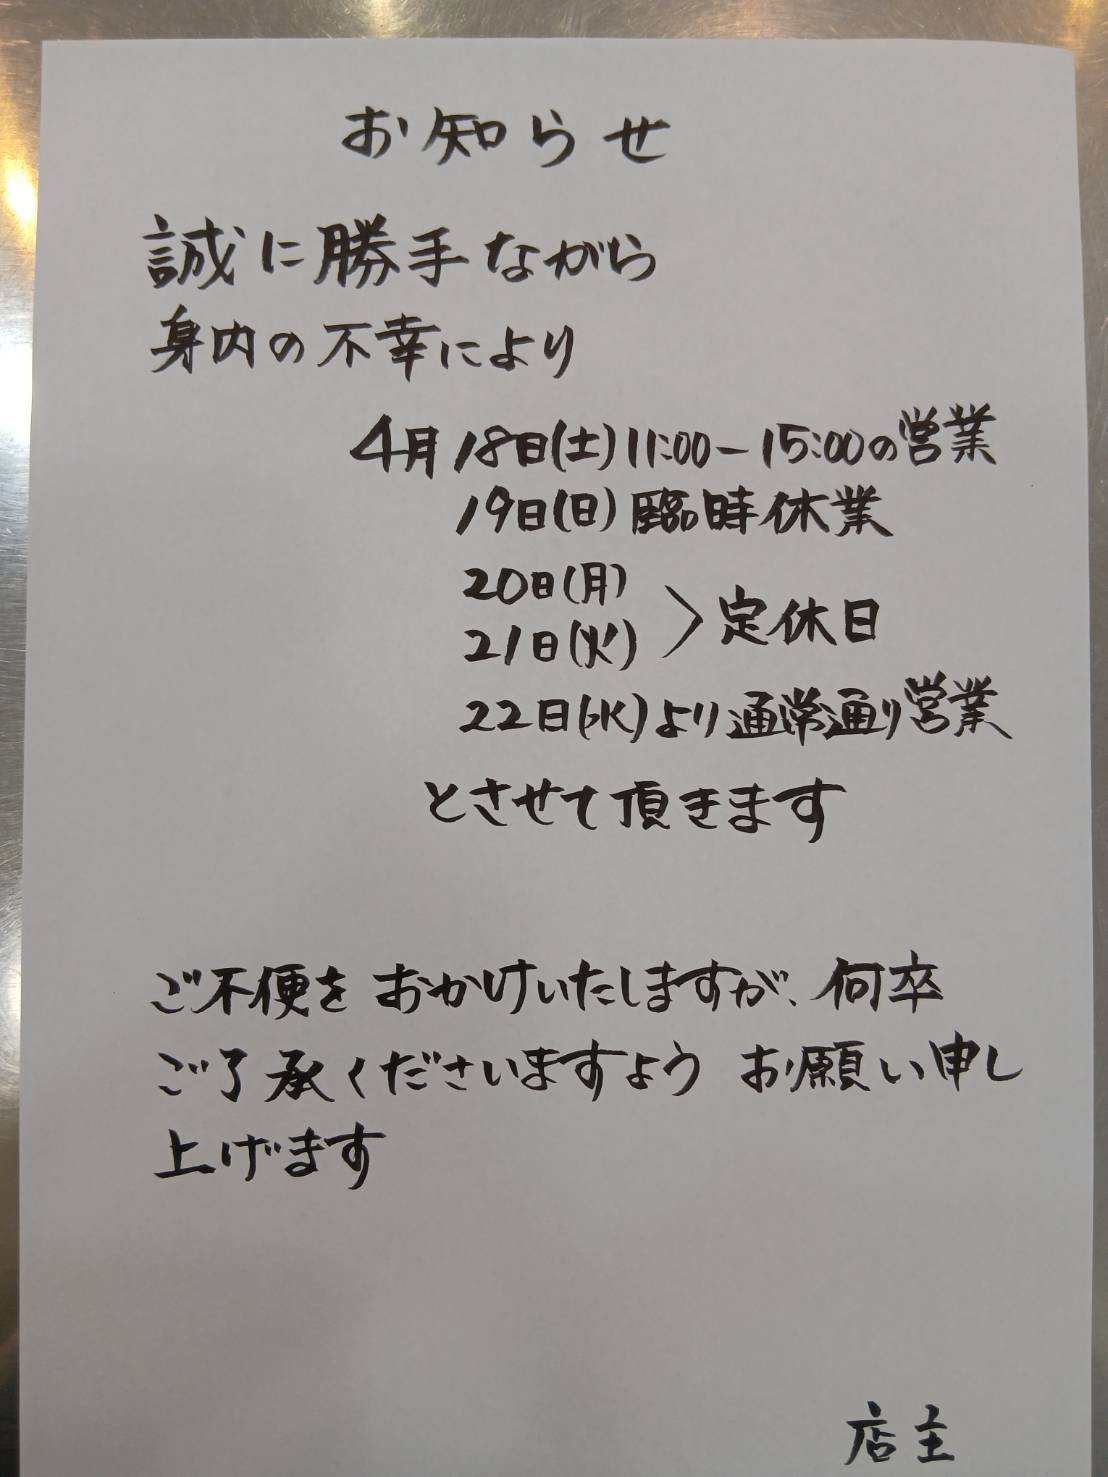 お知らせ
誠に勝手ながら
身内の不幸により
4月18日(土)11:00-15:00の営業
19日(日)臨時休業
20日(月)
21日(火)
>定休日
22日(水)より通常通り営業
とさせて頂きます
ご不便をおかけいたしますが、何卒
ご了承くださいますようお願い申し
上げます
店主